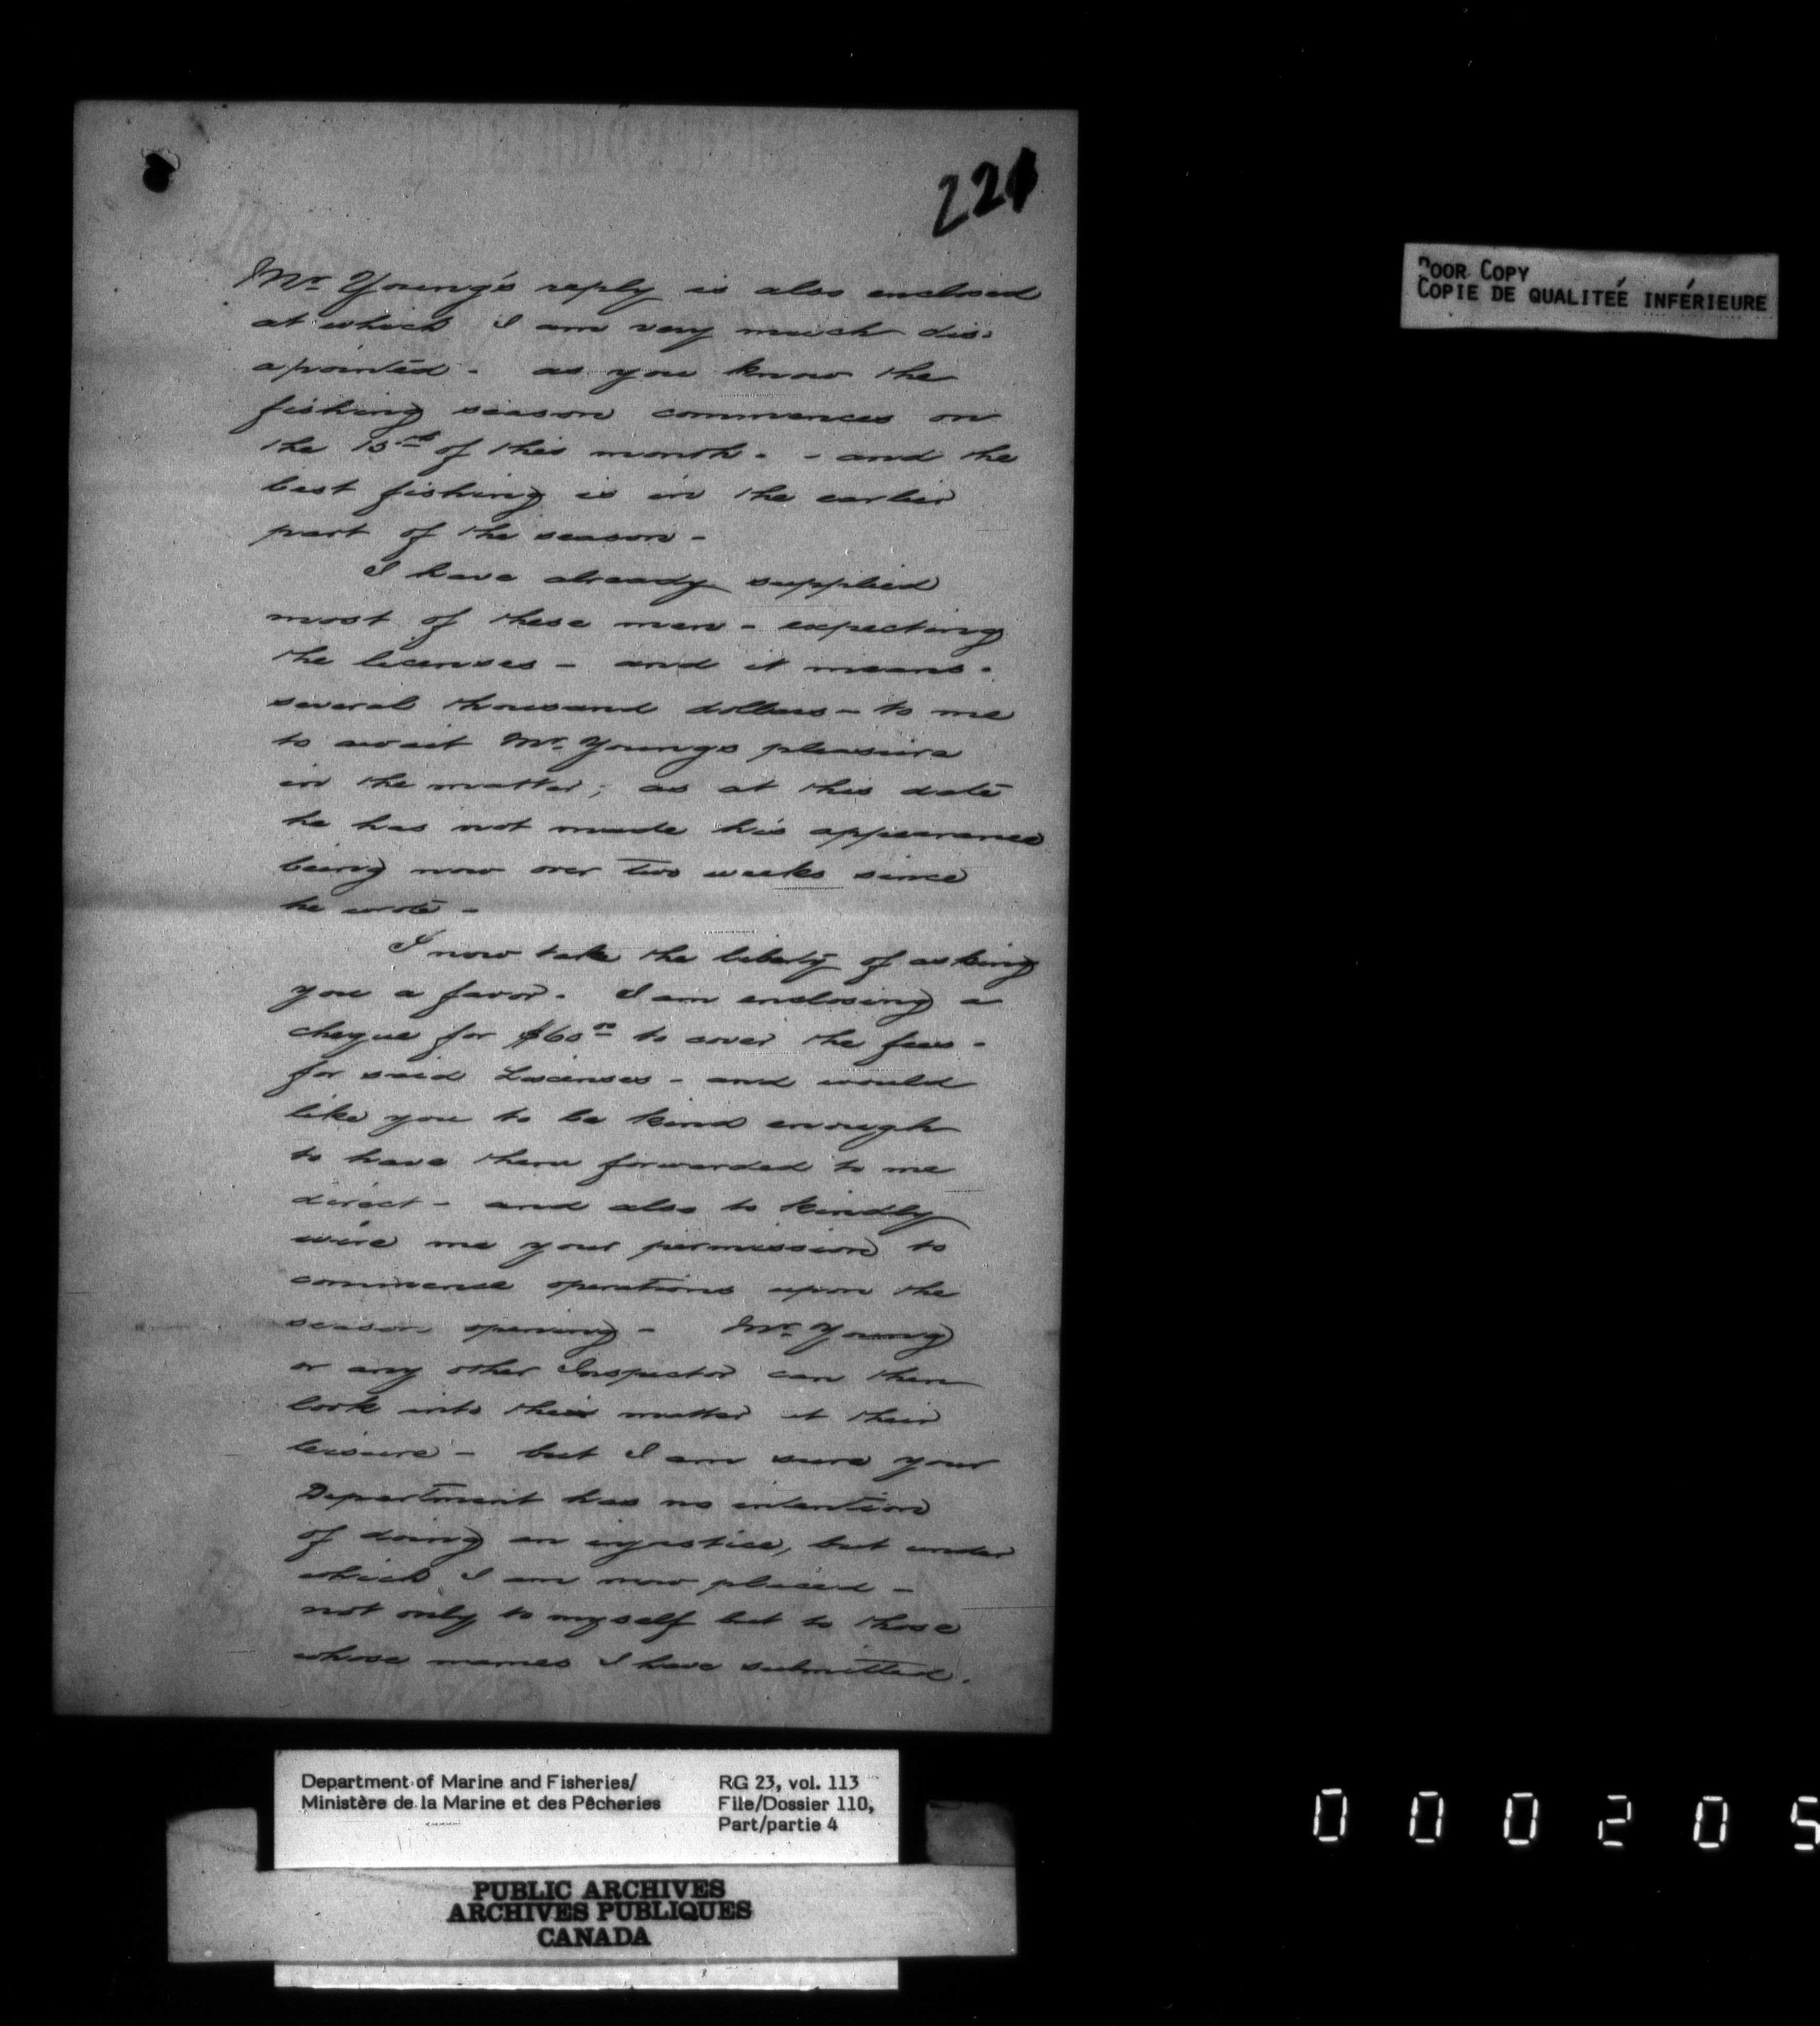 221
Mr. Young's reply is also enclosed
at which I am very much dis-
apointed - as you know the
fishing season commences on
the 15th of this month - - and the
best fishing is in the earlier
part of the season -
I have already supplied
most of these men - expecting
the licenses - and it means -
several thousand dollars - to me
to await Mr. Youngs pleasure
in the matter; as at this date
he has not made his appearance
being now over two weeks since
he wrote -
I now take the liberty of asking
you a favor. I am enclosing a
cheque for $60.00 to cover the fees -
for said Liscenses - and would
like you to be kind enough
to have them forwarded to me
direct - and also to kindly
wire me your permission to
commence operations upon the
season opening - Mr. Young
or any other Inspector can then
look into this matter at their
leisure - but I am sure your
Department has no intention
of doing an injustice, but under
which I am now placed -
not only to myself but to those
whose names I have submitted.
POOR COPY
COPIE DE QUALITEÉ INFÉRIEURE
Department of Marine and Fisheries/
Ministère de la Marine et des Pêcheries
RG 23, vol. 113
File/Dossier 110,
Part/partie 4
PUBLIC ARCHIVES
ARCHIVES PUBLIQUES
CANADA
000205